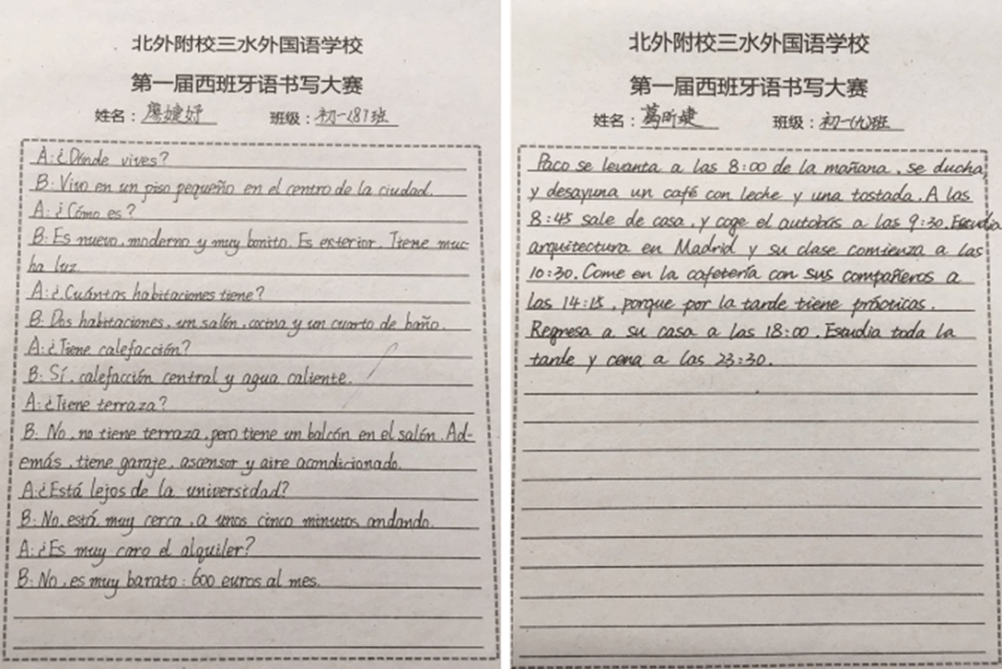 北外附校三水外国语学校
第一届西班牙语书写大赛
姓名：廖婕妤 班级：初一（8）班
A: ¿Dónde vives?
B: Vivo en un piso pequeño en el centro de la ciudad.
A: ¿Cómo es?
B: Es nuevo, moderno y muy bonito. Es exterior. Tiene muc-
ha luz.
A: ¿Cuántas habitaciones tiene?
B: Dos habitaciones, un salón, cocina y un cuarto de baño.
A: ¿Tiene calefacción?
B: Sí, calefacción central y agua caliente.
A: ¿Tiene terraza?
B: No, no tiene terraza, pero tiene un balcón en el salón. Ad-
emás, tiene garaje, ascensor y aire acondicionado.
A: ¿Está lejos de la universidad?
B: No, está muy cerca, a unos cinco minutos andando.
A: ¿Es muy caro el alquiler?
B: No, es muy barato: 600 euros al mes.
北外附校三水外国语学校
第一届西班牙语书写大赛
姓名：葛昕婕 班级：初一（九）班
Paco se levanta a las 8:00 de la mañana, se ducha,
y desayuna un café con leche y una tostada. A las
8:45 sale de casa, y coge el autobús a las 9:30. Estudia
arquitectura en Madrid y su clase comienza a las
10:30. Come en la cafetería con sus compañeros a
las 14:15, porque por la tarde tiene prácticas.
Regresa a su casa a las 18:00. Estudia toda la
tarde y cena a las 23:30.